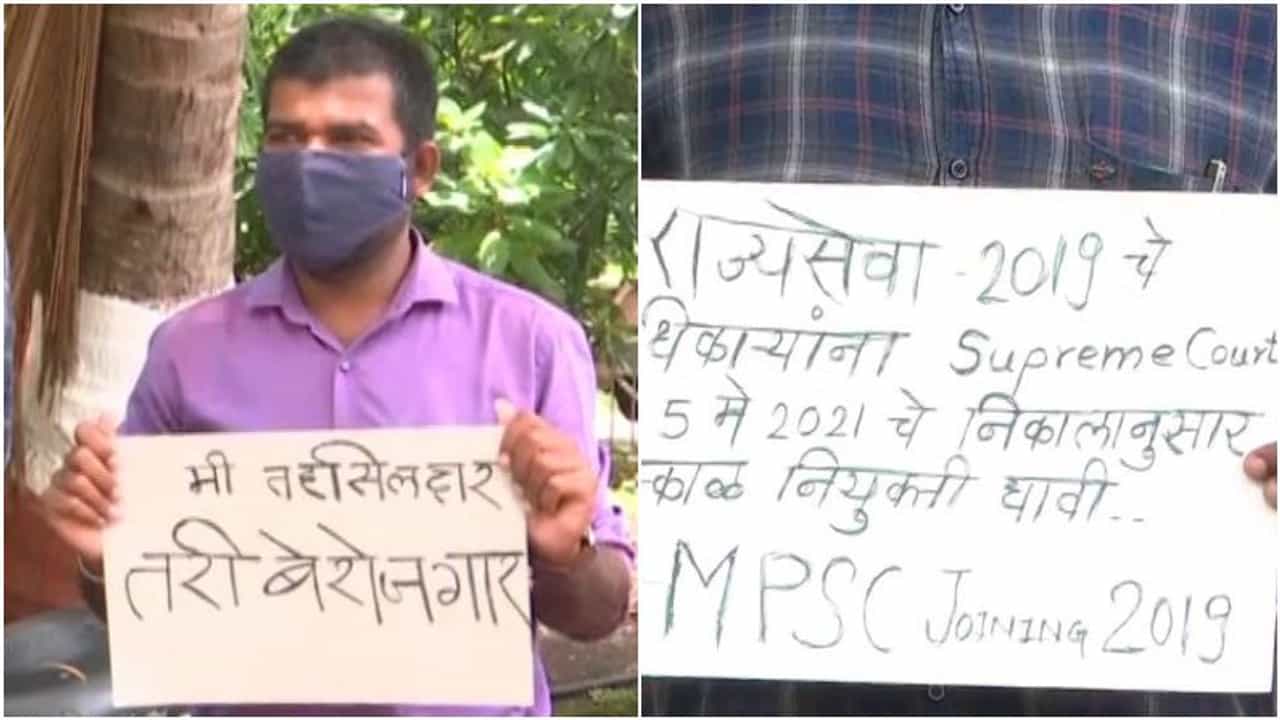 मी तहसिलदार
तरी बेरोजगार
राज्यसेवा - 2019 चे
धिकाऱ्यांना Supreme Court
5 मे 2021 चे निकालानुसार
काळ नियुक्ती द्यावी..
MPSC JOINING 2019